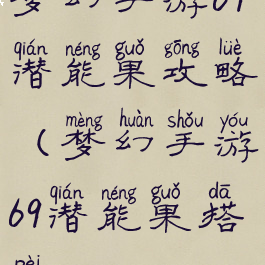 梦幻手游69
qián néng guǒ gōng lüè
潜能果攻略
mèng huàn shǒu yóu
(梦幻手游
qián néng guǒ dā
69潜能果搭
pèi